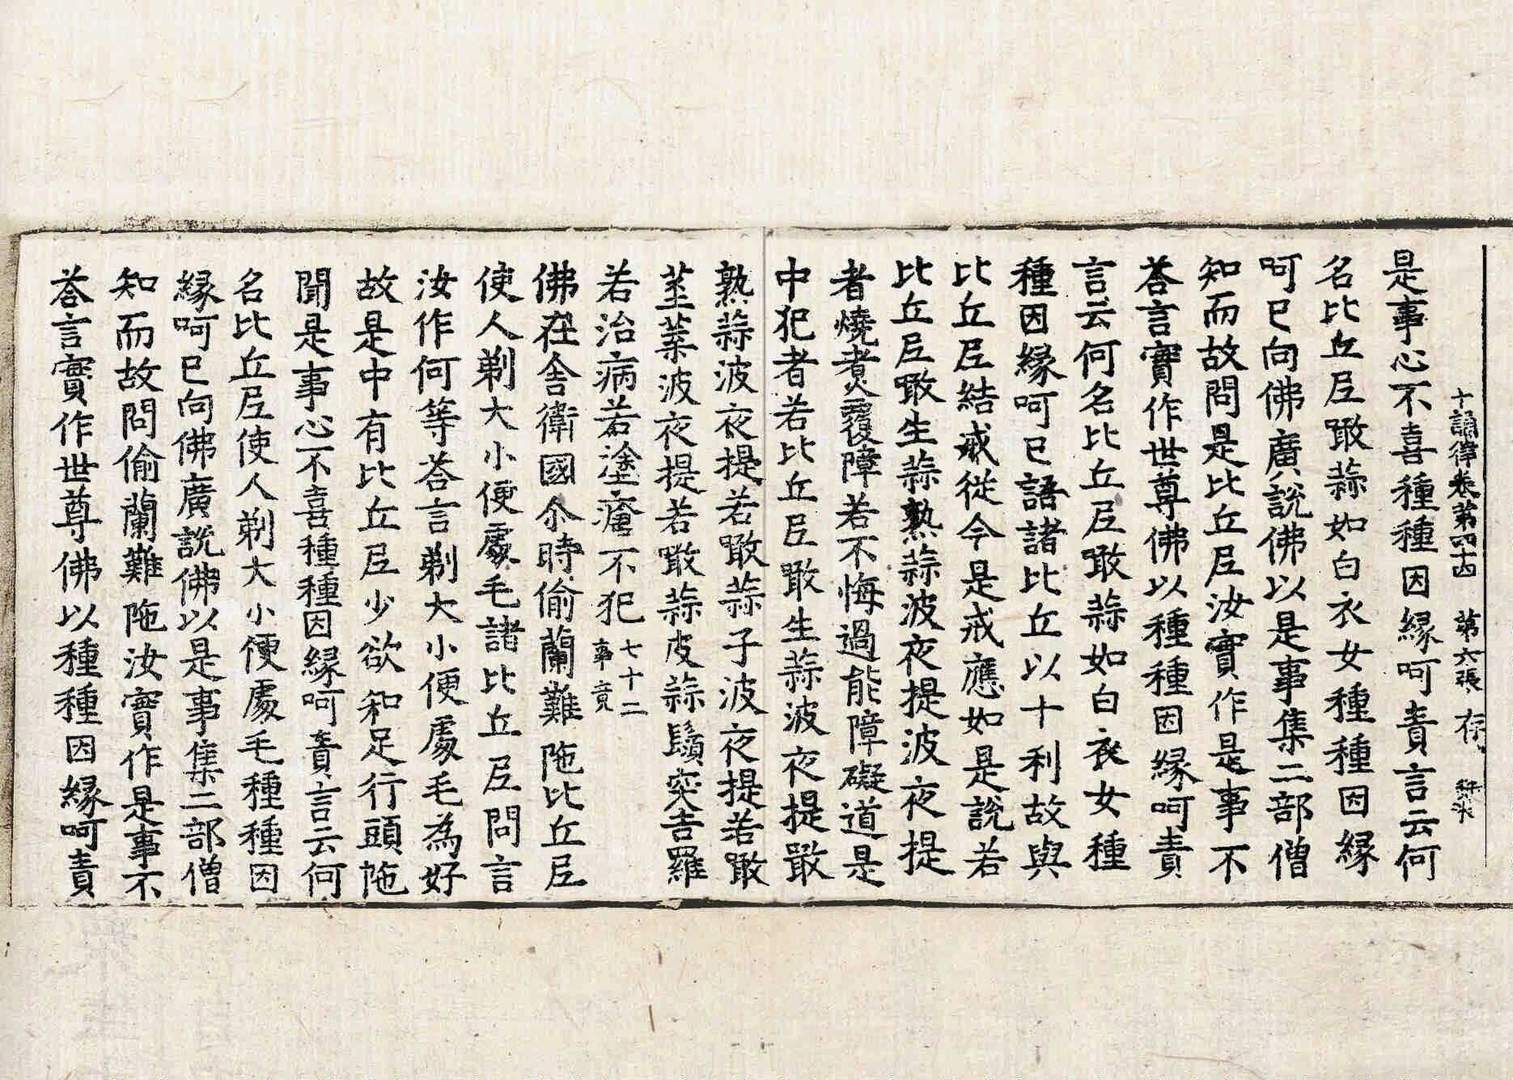 十誦律卷第四十四　第六張　存
是事心不喜種種因縁呵責言云何
名比丘尼噉蒜如白衣女種種因縁
呵已向佛廣說佛以是事集二部僧
知而故問是比丘尼汝實作是事不
荅言實作世尊佛以種種因縁呵責
言云何名比丘尼噉蒜如白衣女種
種因縁呵已語諸比丘以十利故與
比丘尼結戒從今是戒應如是說若
比丘尼噉生蒜熟蒜波夜提波夜提
者燒煑覆障若不悔過能障礙道是
中犯者若比丘尼噉生蒜波夜提噉
熟蒜波夜提若噉蒜子波夜提若噉
莖葉波夜提若噉蒜皮蒜鬚突吉羅
若治病若塗瘡不犯七十二事竟
佛在舍衛國尒時偷蘭難陁比丘尼
使人剃大小便處毛諸比丘尼問言
汝作何等荅言剃大小便處毛為好
故是中有比丘尼少欲知足行頭陁
聞是事心不喜種種因縁呵責言云何
名比丘尼使人剃大小便處毛種種因
縁呵已向佛廣說佛以是事集二部僧
知而故問偷蘭難陁汝實作是事不
荅言實作世尊佛以種種因縁呵責